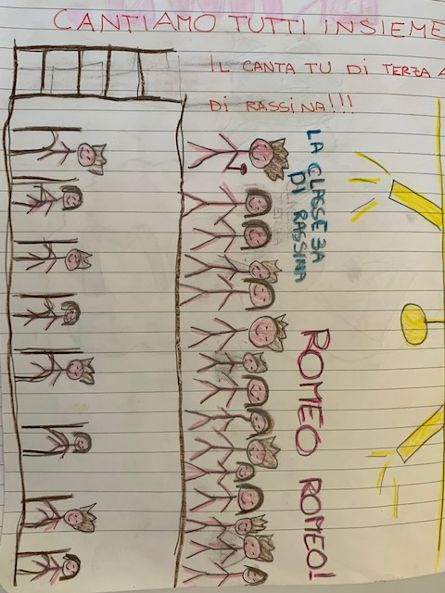 CANTIAMO TUTTI INSIEME
IL CANTA TU DI TERZA A
DI RASSINA!!!
LA CLASSE 3A
DI RASSINA
ROMEO ROMEO!